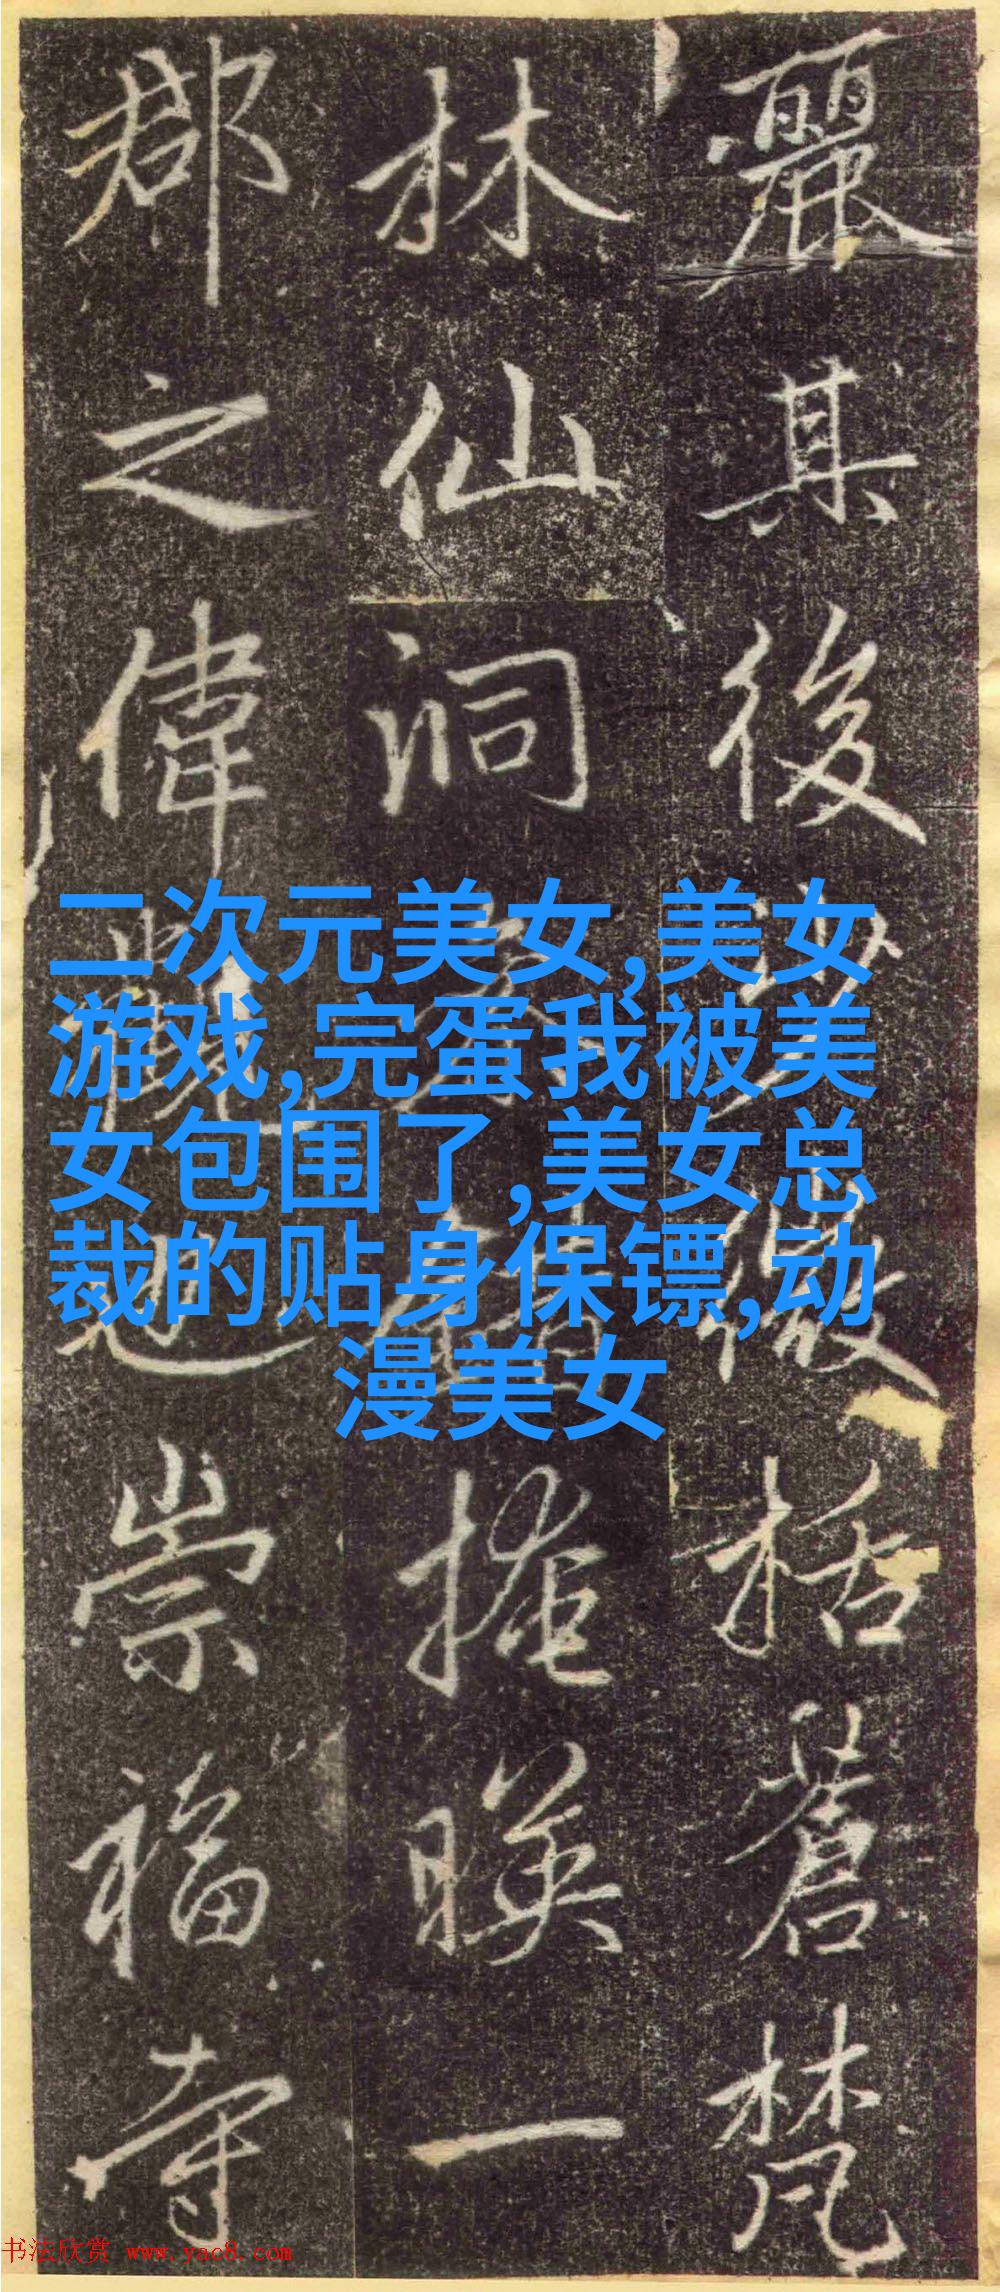 麗其後括蒼梵
林仙洞掩暎一
郡之偉也崇福寺
二次元美女,美女
游戏,完蛋我被美
女包围了,美女总
裁的贴身保镖,动
漫美女
书法欣赏 www.yac8.com